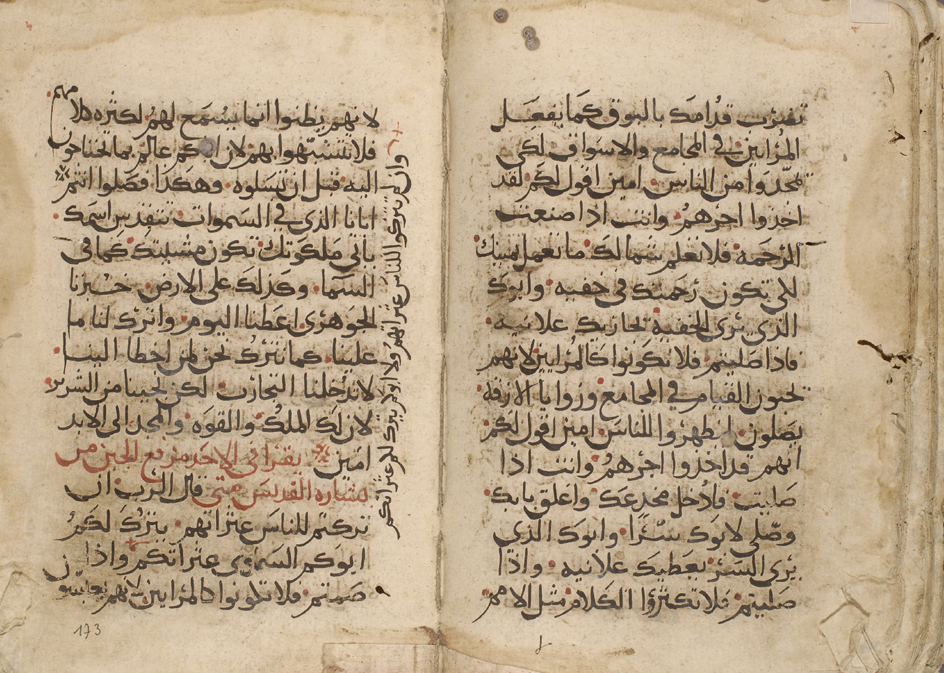 تضرب قدامك بالبوق كما يفعل
المرايين في المجامع والاسواق لكي
يمجدوا من الناس امين اقول لكم لقد
اخذوا اجرهم وانت اذا صنعت
المرحمة فلا تعلم شمالك ما تعمل يمينك
لكي تكون رحمتك في خفيه وابوك
الذي يرى الخفية يجازيك علانيه
فاذا صليتم فلا تكونوا كالمرايين لانهم
يحبون القيام في المجامع وزوايا الازقة
يصلون ليظهروا للناس امين اقول لكم
انهم قد اخذوا اجرهم وانت اذا
صليت فادخل مخدعك واغلق بابك
وصلي لابوك سرا وابوك الذي
يرى السر يعطيك علانيه واذا
صليتم فلا تكثروا الكلام مثل الامم
لانهم يظنوا انما يسمع لهم لكثره كلامهم
فلا تتشبهوا بهم لان ابوكم عالم بما تحتاجون
اليه قبل ان تسلوه وهكذا فصلوا انتم
ابانا الذي في السموات تتقدس اسمك
تاتي ملكوتك تكون مشيتك كما في
السما وكذلك على الارض خبزنا
الجوهري اعطنا اليوم واترك لنا ما
علينا كما نترك نحن لمن اخطا الينا
لا تدخلنا التجارب لكن نجينا من الشرير
لان لك الملك والقوه والمجد الى الابد
امين يقرا في الاحد مرفع الجبن من
بشاره القديس متى قال الرب ان
تركتم للناس عثراتهم يترك لكم
ابوكم السماوي عثراتكم واذا
صمتم فلا تكونوا كالمرايين لانهم يعبسون
وان لم تتركوا للناس عثراتهم ولا ابوكم يترك لكم عثراتكم
173